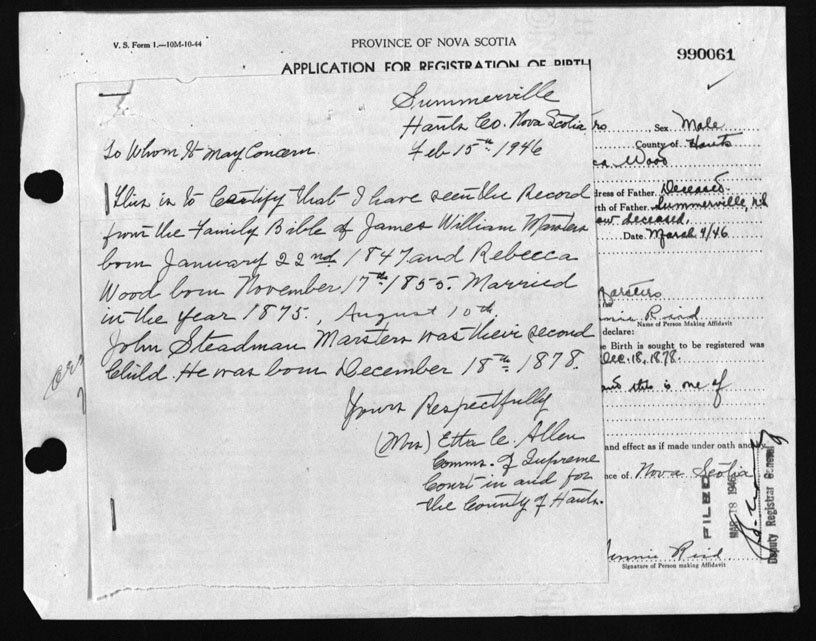 V. S. Form 1.—10M-10-44
PROVINCE OF NOVA SCOTIA
990061
APPLICATION FOR REGISTRATION OF BIRTH
Summerville
Hants Co. Nova Scotia
Feb 15th 1946
To Whom It May Concern
This is to Certify that I have seen the Record
from the Family Bible of James William Marsters
born January 22nd 1847 and Rebecca
Wood born November 17th 1855. Married
in the year 1875, August 10th.
John Steadman Marsters was their second
Child. He was born December 18th 1878.
Yours Respectfully
(Mrs) Etta C. Allen
Comms. of Supreme
Court in and for
the County of Hants.
Sex Male
County of Hants
Wood
dress of Father Deceased
th of Father Summerville, N.S.
now deceased.
Date March 4/46
Marsters
nnie Reid
Name of Person Making Affidavit
declare:
e Birth is sought to be registered was
Dec. 18, 1878
and this is one of
and effect as if made under oath and by
nce of Nova Scotia
FILED
MAR 18 1946
Deputy Registrar General
ennie Reid
Signature of Person making Affidavit